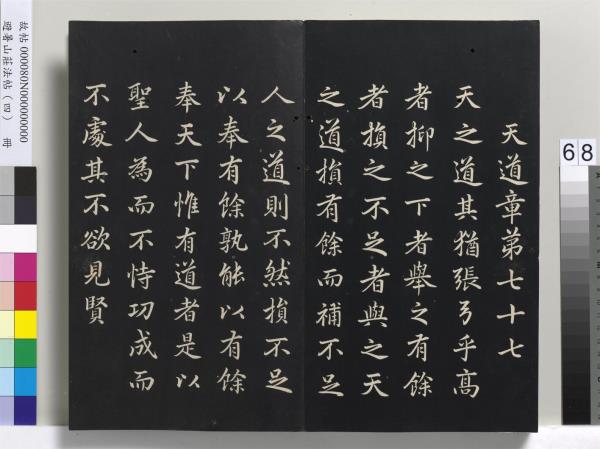 天道章第七十七
天之道其猶張弓乎高
者抑之下者舉之有餘
者損之不足者與之天
之道損有餘而補不足
人之道則不然損不足
以奉有餘孰能以有餘
奉天下惟有道者是以
聖人為而不恃功成而
不處其不欲見賢
故帖 000080N000000000
避暑山莊法帖（四） 冊
68